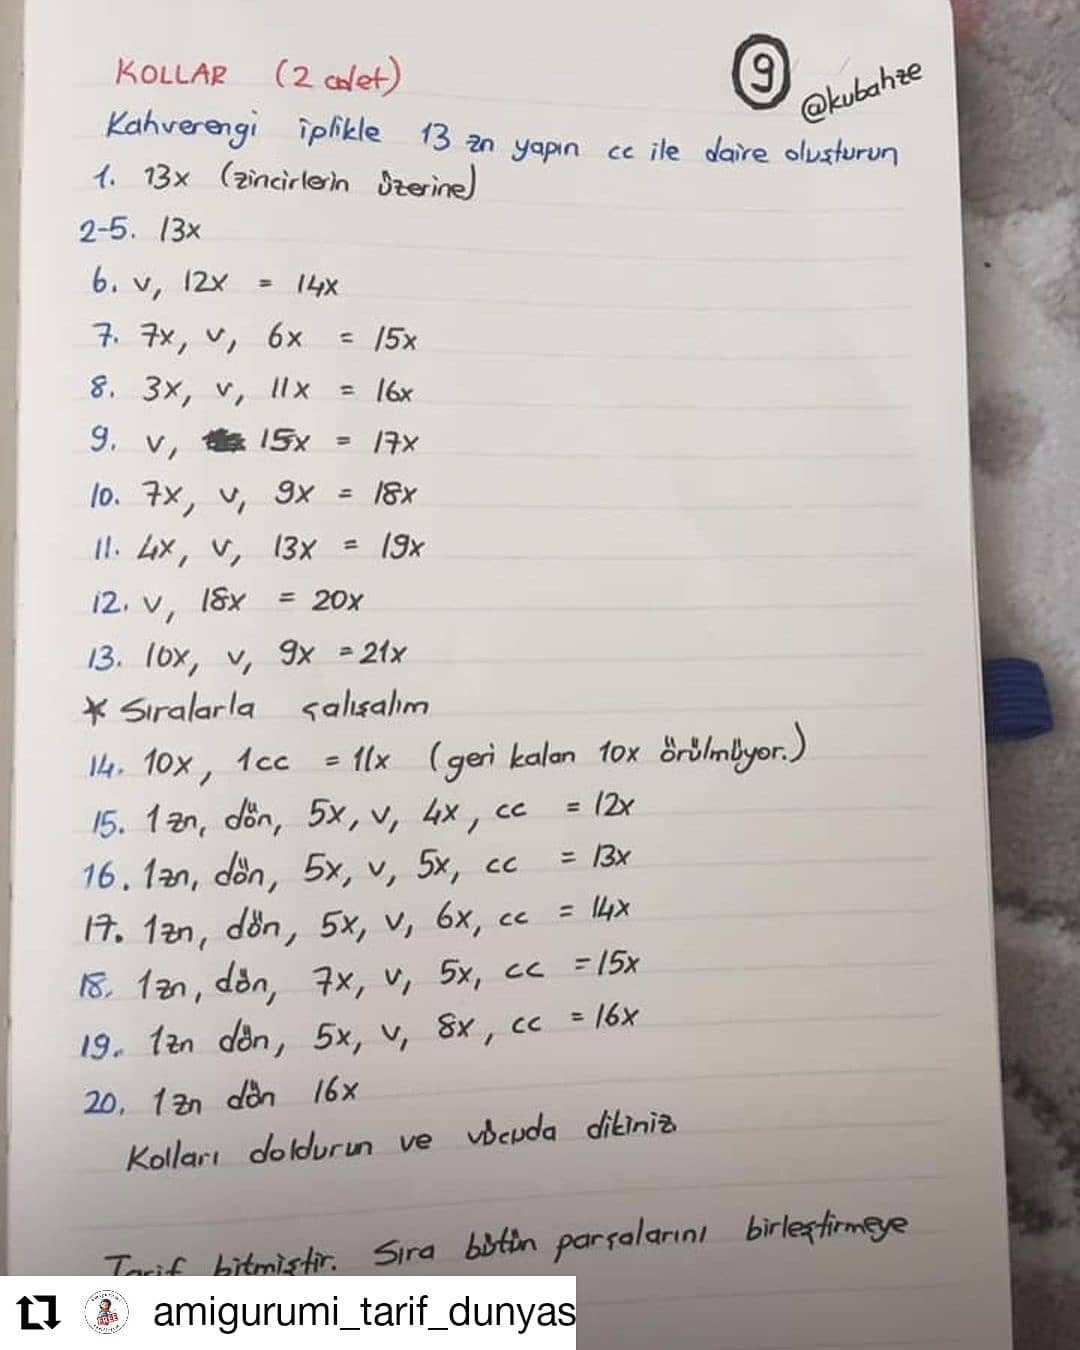 KOLLAR (2 adet)
9
@kubahze
Kahverengi iplikle 13 zn yapın cc ile daire oluşturun
1. 13x (zincirlerin üzerine)
2-5. 13x
6. v, 12x = 14x
7. 7x, v, 6x = 15x
8. 3x, v, 11x = 16x
9. v, 15x = 17x
10. 7x, v, 9x = 18x
11. 4x, v, 13x = 19x
12. v, 18x = 20x
13. 10x, v, 9x = 21x
* Sıralarla çalışalım
14. 10x, 1cc = 11x (geri kalan 10x örülmüyor.)
15. 1zn, dön, 5x, v, 4x, cc = 12x
16. 1zn, dön, 5x, v, 5x, cc = 13x
17. 1zn, dön, 5x, v, 6x, cc = 14x
18. 1zn, dön, 7x, v, 5x, cc = 15x
19. 1zn dön, 5x, v, 8x, cc = 16x
20. 1zn dön 16x
Kolları doldurun ve vücuda dikiniz
Tarif bitmiştir. Sıra bütün parçalarını birleştirmeye
FREE
amigurumi_tarif_dunyas